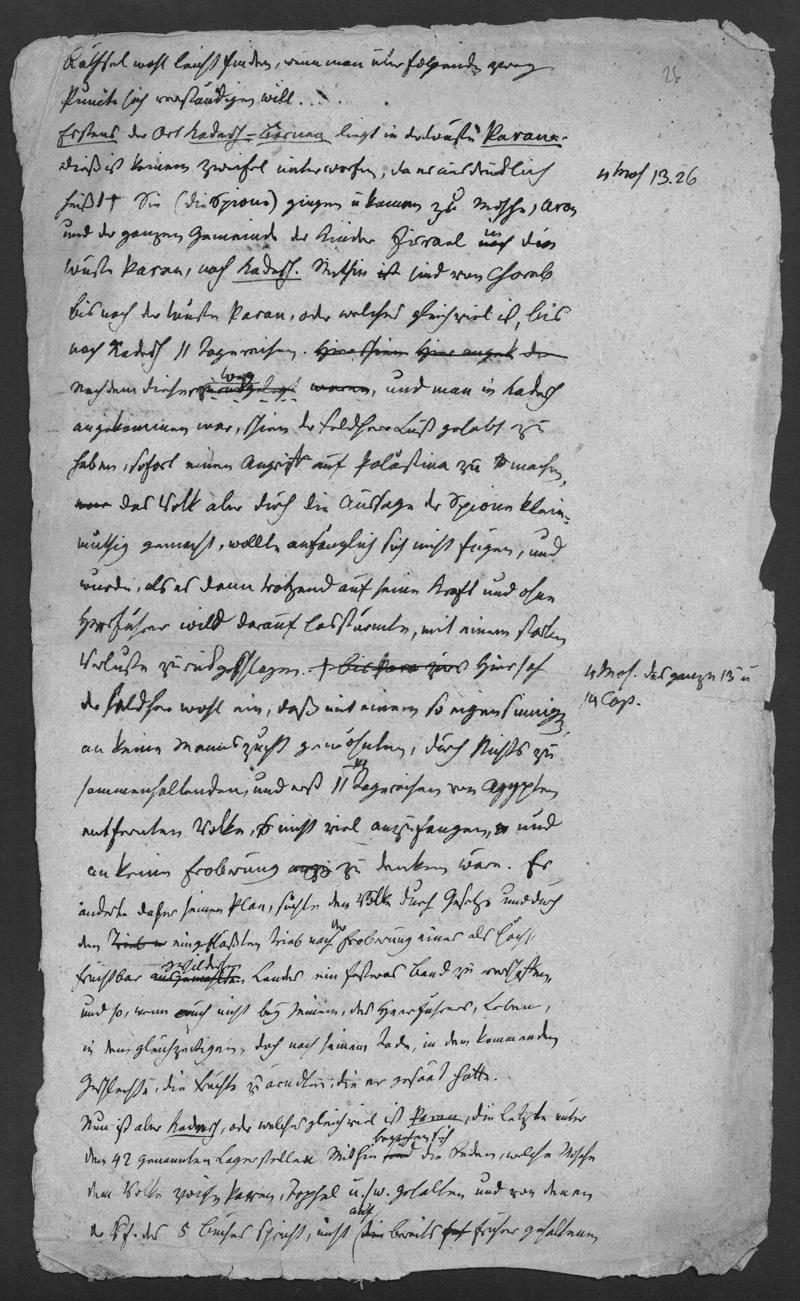 26
Räthsel wohl leicht finden, wenn man über folgende zwey
Puncte sich verständigen will.
Erstens der Ort Kadesch-Barnea liegt in der Wüste Paran.
dieß ist keinem Zweifel unterworfen, da es ausdrücklich
4 Mos 13.26
heißt † Sie (die Spione) gingen u kamen zu Mosche, Aron
und der ganzen Gemeinde der Kinder Jisrael in nach die
Wüste Paran, nach Kadesch. Mithin ist sind von Choreb
bis nach der Wüste Paran, oder welches gleich viel ist, bis
nach Kadesch 11 Tagereisen.
Nachdem dieser Weg zurückgelegt waren, und man in Kadesch
angekommen war, schien der Feldherr Lust gehabt zu
haben, sofort einen Angriff auf Palästina zu machen,
das Volk aber durch die Aussage der Spione klein-
müthig gemacht, wollte anfänglich sich nicht fügen, und
wurde, als es dann trotzend auf seine Kraft und ohne
Heerführer wild darauf losstürmte, mit einem starken
Verluste zurückgeschlagen. † Hier sah
4 Mos. das ganze 13 u
14 Cap.
der Feldherr wohl ein, daß mit einem so eigensinnigen,
an keine Mannszucht gewöhnten, durch Nichts zu
sammenhaltenden, und erst 11 Tagereisen von Aegypten
entfernten Volke, nicht viel anzufangen, und
an keine Eroberung zu denken wäre. Er
änderte daher seinen Plan, suchte dem Volke durch Gesetze und durch
den Trieb eingeflößten Trieb nach der Eroberung eines als höchst
fruchtbar geschilderten Landes ein festeres Band zu verschaffen,
und so, wenn auch nicht bey seinem, des Heerführers, Leben,
in dem gleichzeitigen, doch nach seinem Tode, in dem kommenden
Geschlechte, die Früchte zu erndten, die er gesäet hatte.
Nun ist aber Kadesch, oder welches gleich viel ist Paran, die letzte unter
den 42 genannten Lagerstellen. Mithin beziehen sich die Reden, welche Mosche
dem Volke zwischen Paran, Tophel u.s.w. gehalten und von denen
der Vf. des 5 Buches spricht, nicht auf die bereits früher gehaltenen